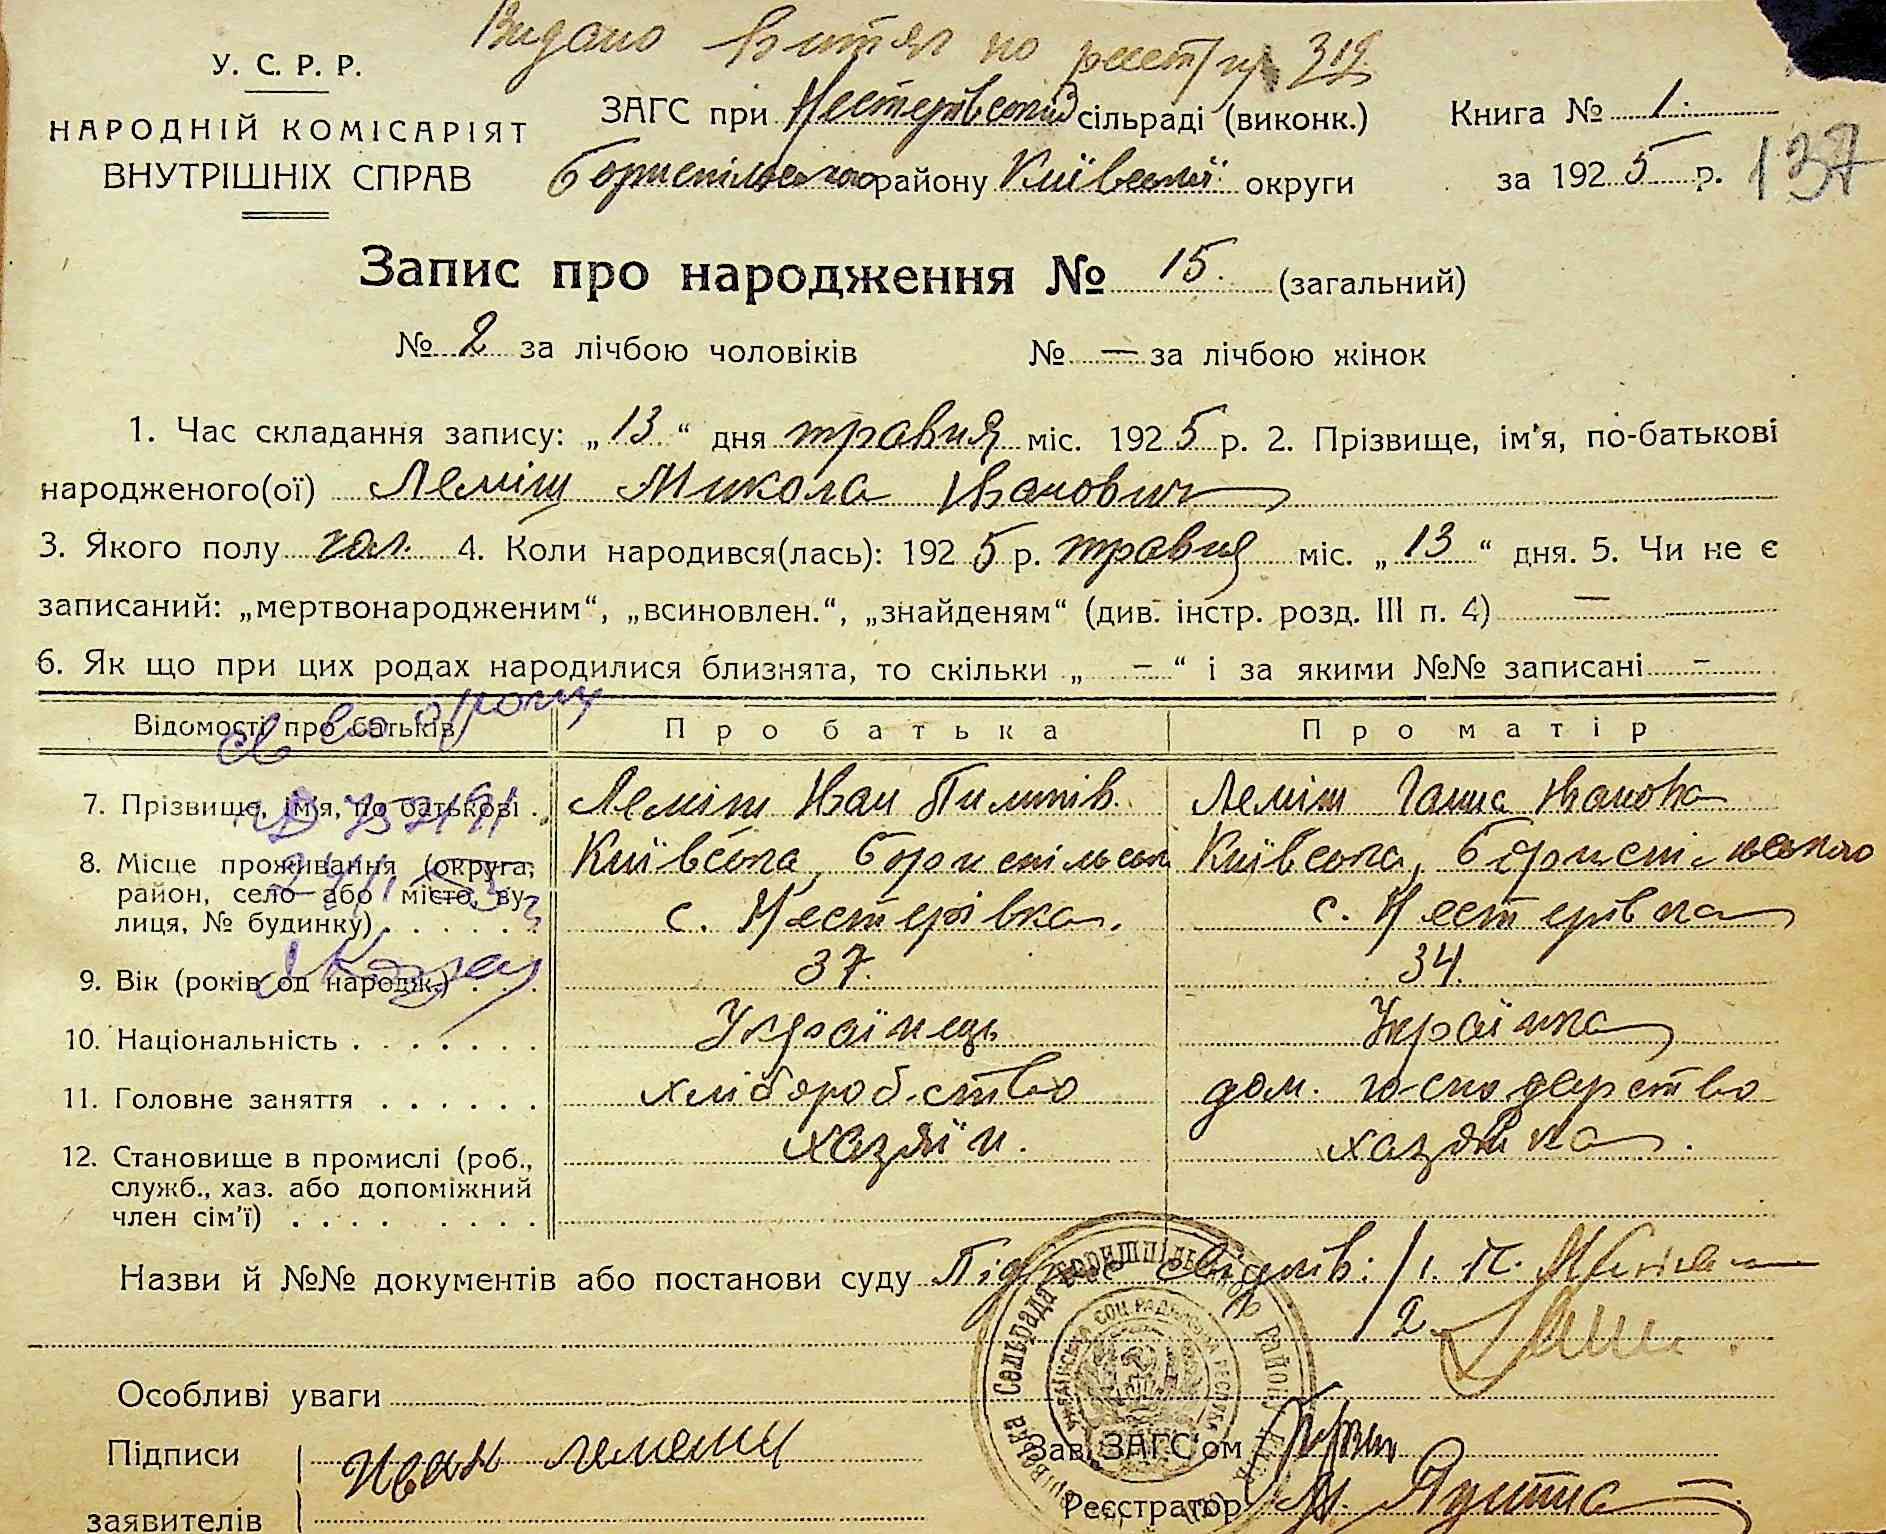 Видано витяг по реєстру 318
У. С. Р. Р.
НАРОДНІЙ КОМІСАРІЯТ
ВНУТРІШНІХ СПРАВ
ЗАГС при Нестерівській сільраді (виконк.)
Бориспільського району Київської округи
Книга № 1.
за 1925 р. 137
Запис про народження № 15. (загальний)
№ 2 за лічбою чоловіків № — за лічбою жінок
1. Час складання запису: „13“ дня травня міс. 1925 р. 2. Прізвище, ім'я, по-батькові
народженого(ої) Леміш Микола Іванович
3. Якого полу чол. 4. Коли народився(лась): 1925 р. травня міс. „13“ дня. 5. Чи не є
записаний: „мертвонародженим“, „всиновлен.“, „знайденям“ (див. інстр. розд. III п. 4) —
6. Як що при цих родах народилися близнята, то скільки „ – “ і за якими №№ записані –
Відомості про батьків Про батька Про матір
7. Прізвище, ім'я, по батькові . Леміш Іван Пилипів. Леміш Ганна Іванова
8. Місце проживання (округа, Київська, Бориспільськ Київська, Бориспільського
район, село або місто, ву-
лиця, № будинку) . . . . . . с. Нестерівка. с. Нестерівка
9. Вік (років од народж.) . . . 37. 34.
10. Національність . . . . . . . Українець Українка
11. Головне заняття . . . . . . хліборобство дом. господарство
12. Становище в промислі (роб., хазяїн. хазяйка.
служб., хаз. або допоміжний
член сім'ї) . . . . . . . .
Назви й №№ документів або постанови суду Підпис свідків: 1. П.
2.
Особливі уваги
Підписи Иван лемеш
заявителів
Зав. ЗАГС'ом
Реєстратор
Сільрада Бориспільського району
УКРАЇНСЬКА СОЦ. РАДЯНСЬКА РЕСПУБЛІКА